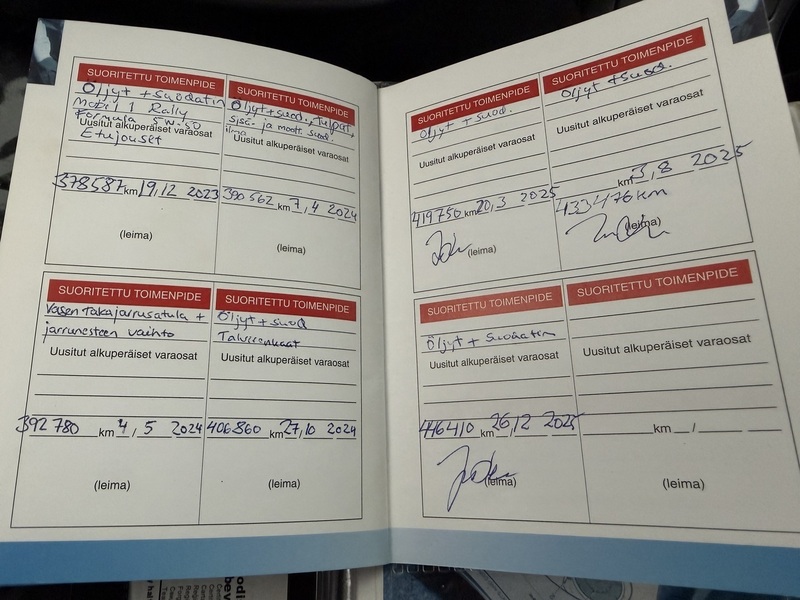 SUORITETTU TOIMENPIDE
Öljyt + Suodatin
Mobil 1 Rally
Formula 5W-50
Uusitut alkuperäiset varaosat
Etujouset
378587 km 19, 12 2023
(leima)
SUORITETTU TOIMENPIDE
Öljyt + suod., Tulpat,
sisä- ja moott. suod.
ilma
Uusitut alkuperäiset varaosat
390562 km 7, 4 2024
(leima)
Vasen Takajarrusatula +
SUORITETTU TOIMENPIDE
jarrunesteen vaihto
Uusitut alkuperäiset varaosat
392780 km 4 / 5 2024
(leima)
SUORITETTU TOIMENPIDE
Öljyt + suod
Talvirenkaat
Uusitut alkuperäiset varaosat
406860 km 27, 10 2024
(leima)
SUORITETTU TOIMENPIDE
Öljyt + suod.
Uusitut alkuperäiset varaosat
419750 km 20, 3 2025
(leima)
SUORITETTU TOIMENPIDE
Öljyt + suod.
Uusitut alkuperäiset varaosat
km 3, 8 2025
433476 km
(leima)
SUORITETTU TOIMENPIDE
Öljyt + Suodatin
Uusitut alkuperäiset varaosat
446410 km 26, 12 2025
(leima)
SUORITETTU TOIMENPIDE
Uusitut alkuperäiset varaosat
km /
(leima)